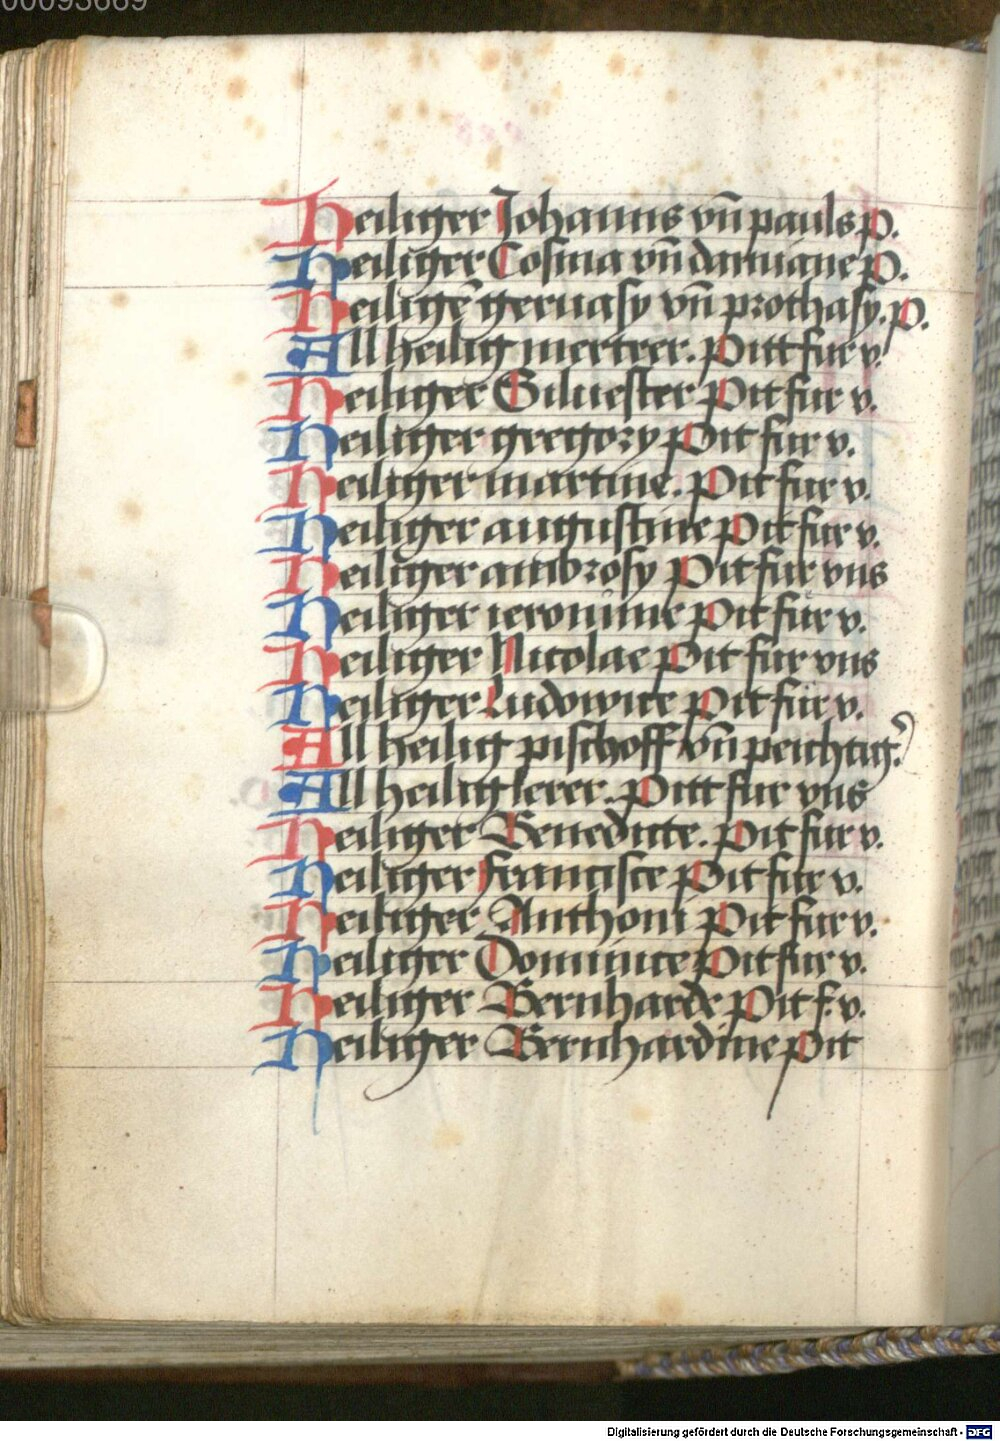 00093669
Heiliger Johanns vn̄ pauls p.
Heiliger Cosma vn̄ damiane p.
Heiligē geruasy vn̄ prothasy. p.
All heilig mertrer. pitt fur v.
Heiliger Siluester Pit fur v.
Heiliger gregory Pit fur v.
Heiliger martine. Pit fur v.
Heiliger augustine Pit fur v.
Heiliger ambrosy Pit fur vns
Heiliger ieronime Pit für v.
Heiliger Nicolae Pit für vns
Heiliger Ludowice Pit für v.
All heilig pischoff vn̄ peichtig.
All heilig lerer. Pitt fur vns
Heiliger Benedicte. Pit fur v.
Heiliger Francisce Pit fur v.
Heiliger Anthoni Pit fur v.
Heiliger Dominice Pit fur v.
Heiliger Bernharde Pit f. v.
Heiliger Bernhardine pit
Digitalisierung gefördert durch die Deutsche Forschungsgemeinschaft - DFG